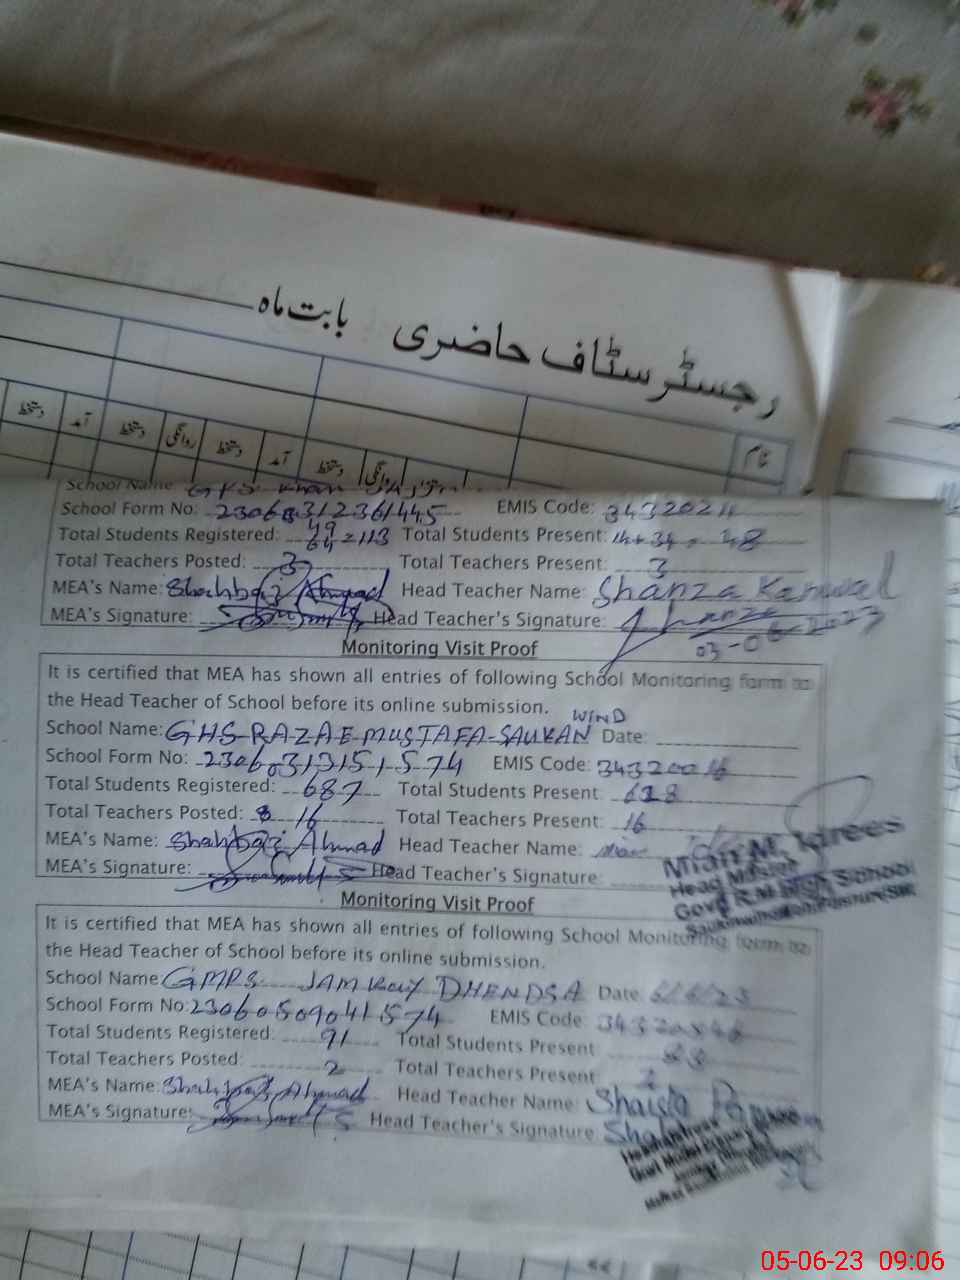 رجسٹر سٹاف حاضری بابت ماہ
نام
دستخط آمد دستخط روانگی دستخط آمد دستخط روانگی
School Name: GPS Khan
School Form No: 23060312361445 EMIS Code: 343202
Total Students Registered: 49 64 = 113 Total Students Present: 14+34 = 48
Total Teachers Posted: 3 Total Teachers Present: 3
MEA's Name: Shahbaz Ahmad Head Teacher Name: Shanza Kanwal
MEA's Signature: Head Teacher's Signature: Shanza
03-06-2023
Monitoring Visit Proof
It is certified that MEA has shown all entries of following School Monitoring form to
the Head Teacher of School before its online submission.
WIND
School Name: GHS RAZAE MUSTAFA SAUKAN Date:
School Form No: 23060313151574 EMIS Code: 34320016
Total Students Registered: 687 Total Students Present: 628
Total Teachers Posted: 16 Total Teachers Present: 16
MEA's Name: Shahbaz Ahmad Head Teacher Name:
MEA's Signature: Head Teacher's Signature:
Mian M. Idrees
Head Master
Govt R.M High School
Monitoring Visit Proof
It is certified that MEA has shown all entries of following School Monitoring form to
the Head Teacher of School before its online submission.
School Name: GMPS JAMKAY DHENDSA Date
School Form No: 23060509041574 EMIS Code:
Total Students Registered: 91 Total Students Present
Total Teachers Posted: 2 Total Teachers Present: 2
MEA's Name: Shahbaz Ahmad Head Teacher Name: Shaista Parveen
MEA's Signature: Head Teacher's Signature
05-06-23 09:06